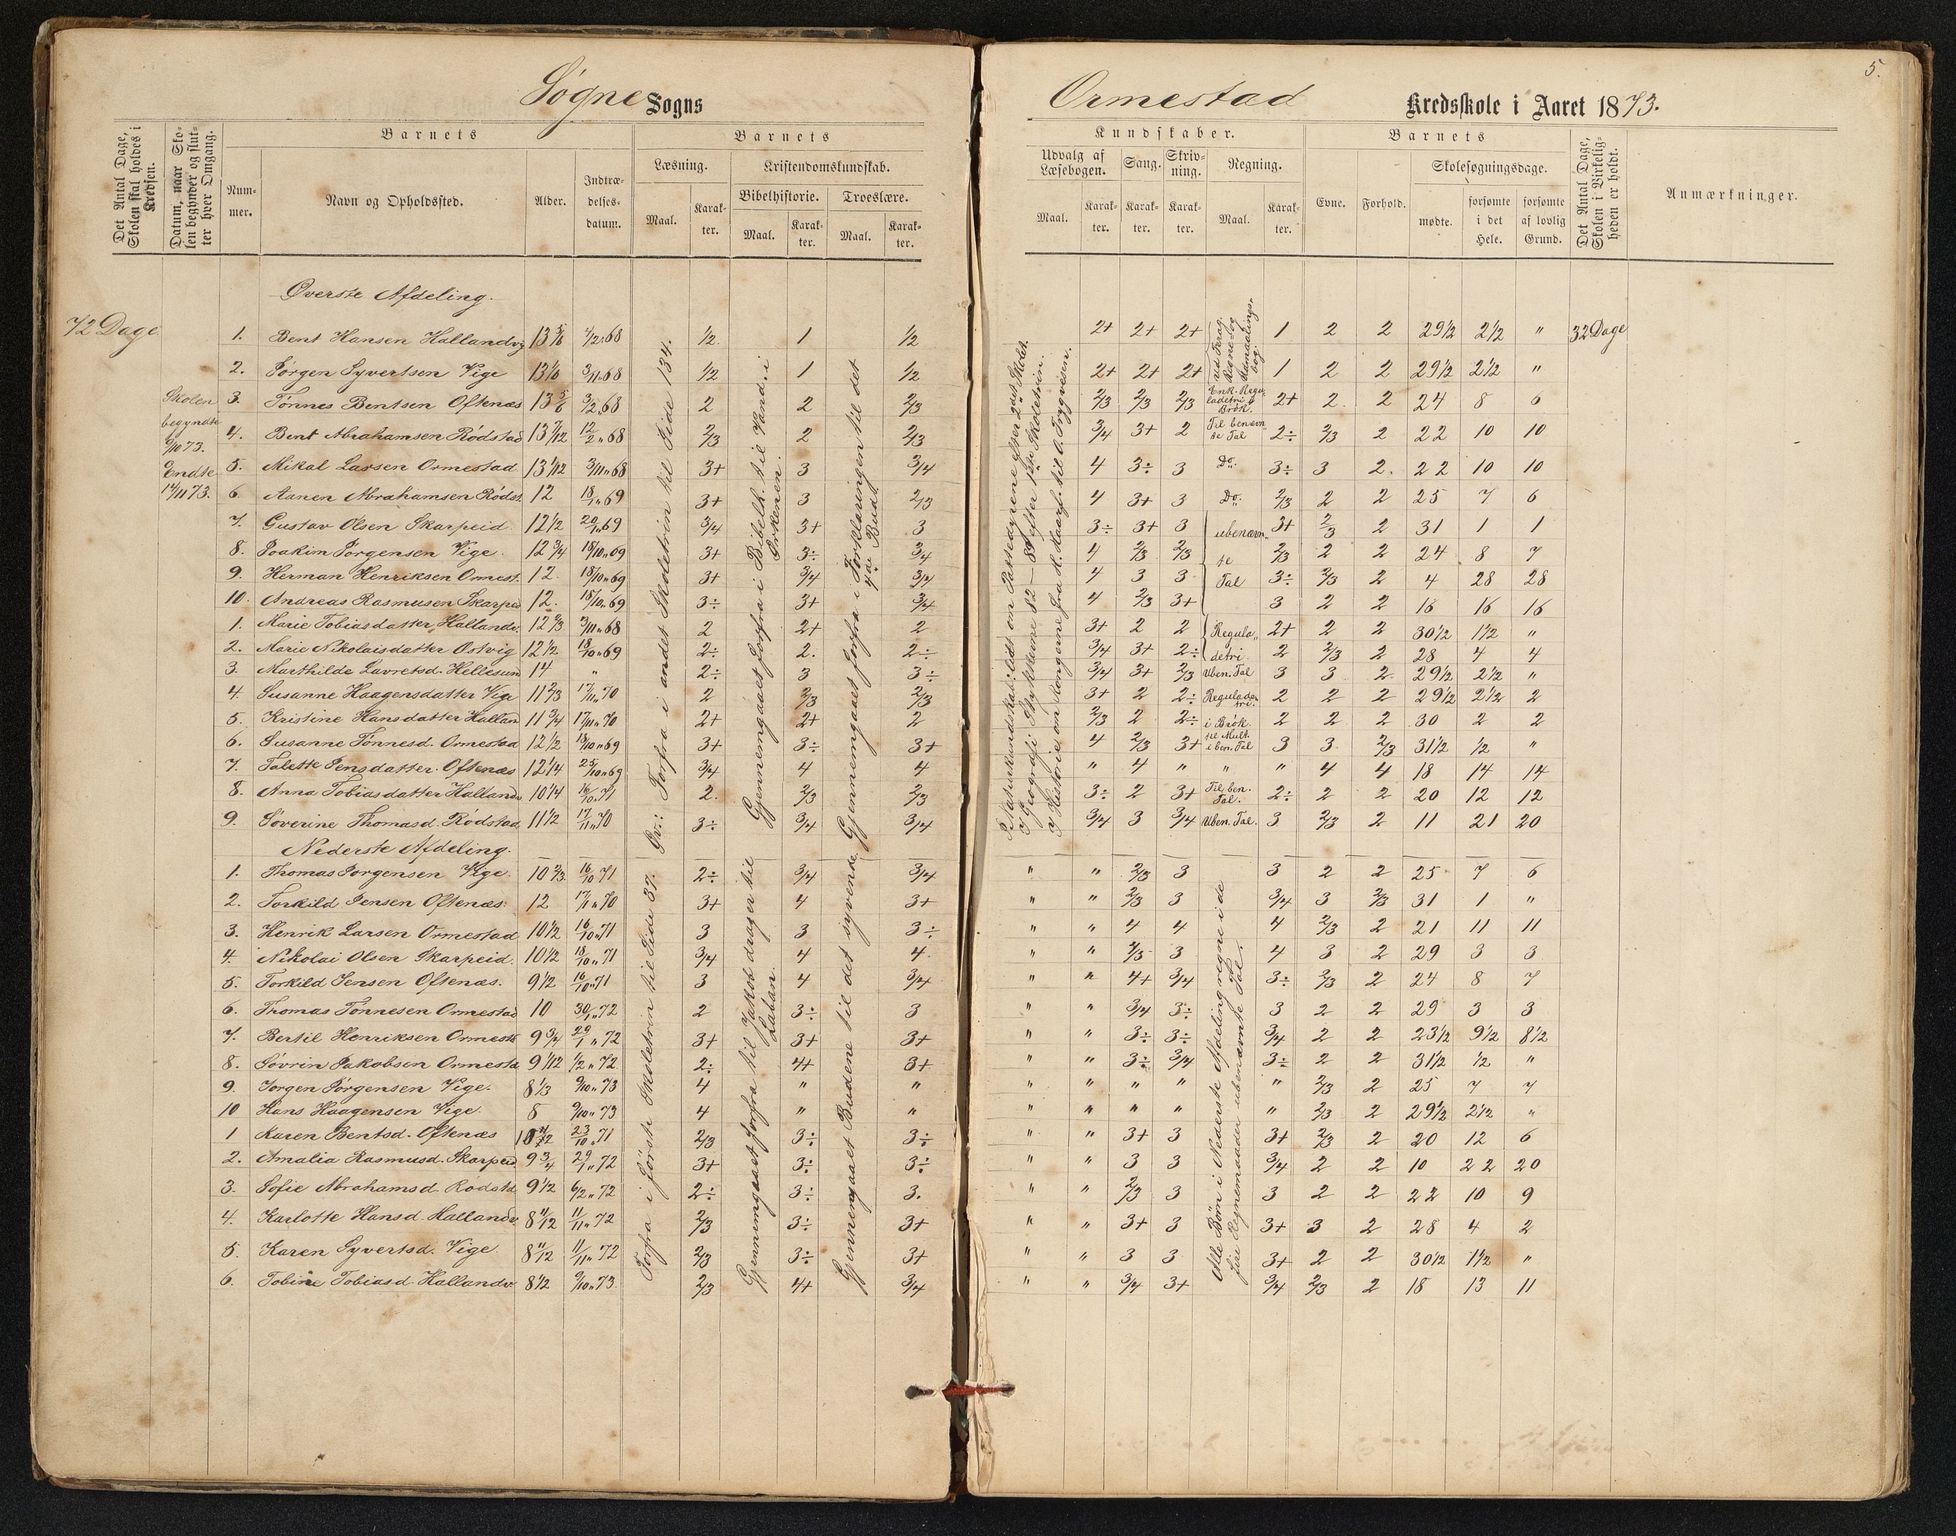 5.
Søgne Sogns
Ormestad Kredsskole i Aaret 1873.
Det Antal Dage, Skolen skal holdes i Kredsen.
Datum, naar Skolen begynder og slutter hver Omgang.
Barnets
Nummer.
Navn og Opholdssted.
Alder.
Indtrædelsesdatum.
Barnets
Læsning.
Maal.
Karakter.
Kristendomskundskab.
Bibelhistorie.
Maal.
Karakter.
Troeslære.
Maal.
Karakter.
Kundskaber.
Udvalg af Læsebogen.
Maal.
Karakter.
Sang.
Karakter.
Skrivning.
Karakter.
Regning.
Maal.
Karakter.
Barnets
Evne.
Forhold.
Skolesøgningsdage.
mødte.
forsømte i det Hele.
forsømte af lovlig Grund.
Det Antal Dage, Skolen i Virkeligheden er holdt.
Anmærkninger.
Øverste Afdeling.
72 Dage
Skolen begyndte 9/10 73. Endte 14/11 73.
1. Bent Hansen Hallandvig 13 5/6 4/2 68 1/2 1 1/2 2+ 2+ 2+ 1 2 2 29 1/2 2 1/2 " 32 Dage
2. Jørgen Syvertsen Vige 13 1/6 3/11 68 1/2 1 1/2 2+ 2+ 2+ 1 2 2 29 1/2 2 1/2 "
3. Tønnes Bentsen Oftenæs 13 5/6 3/2 68 2 2 2/3 2/3 2/3 2/3 2+ 2 2 24 8 6
4. Bent Abrahamsen Rödstad 13 7/12 12/2 68 2/3 2 2/3 3/4 3+ 2 2÷ 2/3 2 22 10 10
5. Mikal Larsen Ormestad 13 1/12 3/11 68 3+ 3 3/4 4 3÷ 3 Do. 3÷ 3 2 22 10 10
6. Aanen Abrahamsen Rödst. 12 18/1 69 3+ 3 2/3 4 3+ 3 Do. 2/3 2 2 25 7 6
7. Gustav Olsen Skarpeid 12 1/2 20/1 69 3/4 3+ 3 3÷ 3+ 3 3+ 2/3 2 31 1 1
8. Joakim Jørgensen Vige 12 3/4 18/10 69 3+ 3÷ 3/4 4 2/3 2/3 2/3 2 2 24 8 7
9. Herman Henriksen Ormest. 12 18/10 69 3+ 3/4 3/4 4 3 3 3÷ 2/3 2 4 28 28
10. Andreas Rasmusen Skarpeid 12 18/10 69 3÷ 3+ 3/4 4 2/3 3+ 3 2 2 16 16 16
1. Marie Tobiasdatter Hallandv. 12 2/3 3/11 68 2 2+ 2 3+ 2 2 2+ 2 2 30 1/2 1 1/2 "
2. Marie Nikolaisdatter Ostvig 12 1/2 18/10 69 2÷ 2. 2÷ 3/4 3+ 2÷ 2 2/3 2 28 4 4
3. Marthilde Lavretsd. Hellesund 14 " 2÷ 3 3÷ 3/4 3+ 2/3 Uben. Tal 3 3 2 29 1/2 2 1/2 "
4. Susanne Haagensdatter Vige 11 2/3 17/11 70 2 2/3 2/3 3+ 2 2÷ 2 2 2 29 1/2 2 1/2 2
5. Kristine Hansdatter Halland 11 3/4 17/11 70 2+ 2+ 2 2/3 2 2÷ i Brök 2 2 2 30 2 2
6. Susanne Tönnesd. Ormestad 12 1/2 18/10 69 3+ 3÷ 3+ 4 2/3 3+ til Mult i ben. Tal 3 3 2/3 31 1/2 1/2 "
7. Talette Jensdatter Oftenæs 12 1/4 25/10 69 3/4 4 4 " 4 " " " 4 4 18 14 14
8. Anna Tobiasdatter Hallandv 10 1/4 16/10 71 2. 2/3 2/3 3÷ 2 3+ Til ben. Tal. 2÷ 2 2 20 12 12
9. Søverine Thomasd. Rödstad 11 1/2 17/11 70 3÷ 3/4 3/4 3/4 3 3/4 Uben. Tal. 3 2/3 2 11 21 20
Nederste Afdeling.
1. Thomas Jørgensen Vige 10 2/3 16/10 71 2÷ 3/4 3/4 " " 2/3 3 3 2 2 25 7 6
2. Torkild Jensen Oftenæs 12 17/11 70 3+ 4 3+ " " 2/3 3 3/4 3 2/3 31 1 "
3. Henrik Larsen Ormestad 10 1/2 16/10 71 3 3 3÷ " " 4 4 4 2/3 2 21 11 11
4. Nikolai Olsen Skarpeid. 10 1/2 18/10 71 3/4 4 4 " " 3 4 3 2 29 3 3
5. Torkild Jensen Oftenæs. 9 1/2 16/10 71 3 4 3/4 " " 4+ 3/4 3÷ 2/3 2 24 8 7
6. Thomas Tönnesen Ormestad 10 30/1 72 2 3÷ 3 " " 3/4 3÷ 3 2 2 29 3 3
7. Bertil Henriksen Ormest 9 3/4 29/1 72 3+ 3+ 3+ " " 3÷ 3÷ 3/4 2 2 23 1/2 9 1/2 8 1/2
8. Sövrin Jakobsen Ormesta 9 1/12 1/2 72 2÷ 4+ 3+ " " 3÷ 3/4 3÷ 2 2 31 1/2 1/2 "
9. Jørgen Jørgensen Vige. 8 1/3 9/10 73 4 " " " " " " " 2/3 2 25 7 7
10 Hans Haagensen Vige 8 9/10 73 4 " " " " " " " 2/3 2 29 1/2 2 1/2 "
1 Karen Bentsd. Oftenæs 23/10 71 2/3 3÷ 3÷ " " 3+ 3 3+ 2/3 2 20 12 6
2. Amalia Rasmusd. Skarpeid 9 3/4 29/1 72 3+ 3÷ 3÷ " " 3 3 3/4 2 2 10 22 20
3. Sofie Abrahamsd Rödstd 9 1/2 6/2 72 2÷ 3÷ 3. " " 2/3 3 3 2 2 22 10 9
4. Karlotte Hansd. Hallandv. 8 11/12 11/11 72 2/3 3÷ 3+ " " 3+ 3 3+ 3 2 28 4 2
5. Karen Syvertsd. Vige 8 11/12 11/11 72 2/3 3÷ 3+ " " 3 3 3+ 2 2 30 1/2 1 1/2 "
6. Tobine Tobiasd Hallandv 8 1/2 9/10 73 2/3 4+ 3/4 " " 3/4 3+ 3/4 2/3 2 18 13 11
Gr.: Forfra i andet Skoletrin til Side 134.
Forfra i første Skoletrin til Side 37.
Gjennemgaaet forfra i Bibelh. til Vandr. i Ørkenen.
Gjennemgaaet forfra til Jakob drager til Laban.
Gjennemgaaet forfra i Forklaringen til det 4de Bud.
Gjennemgaaet Budene til det syvende
Alle Børn i Nederste Afdeling regne i de fire Regnemaader ubenævnte Tal.